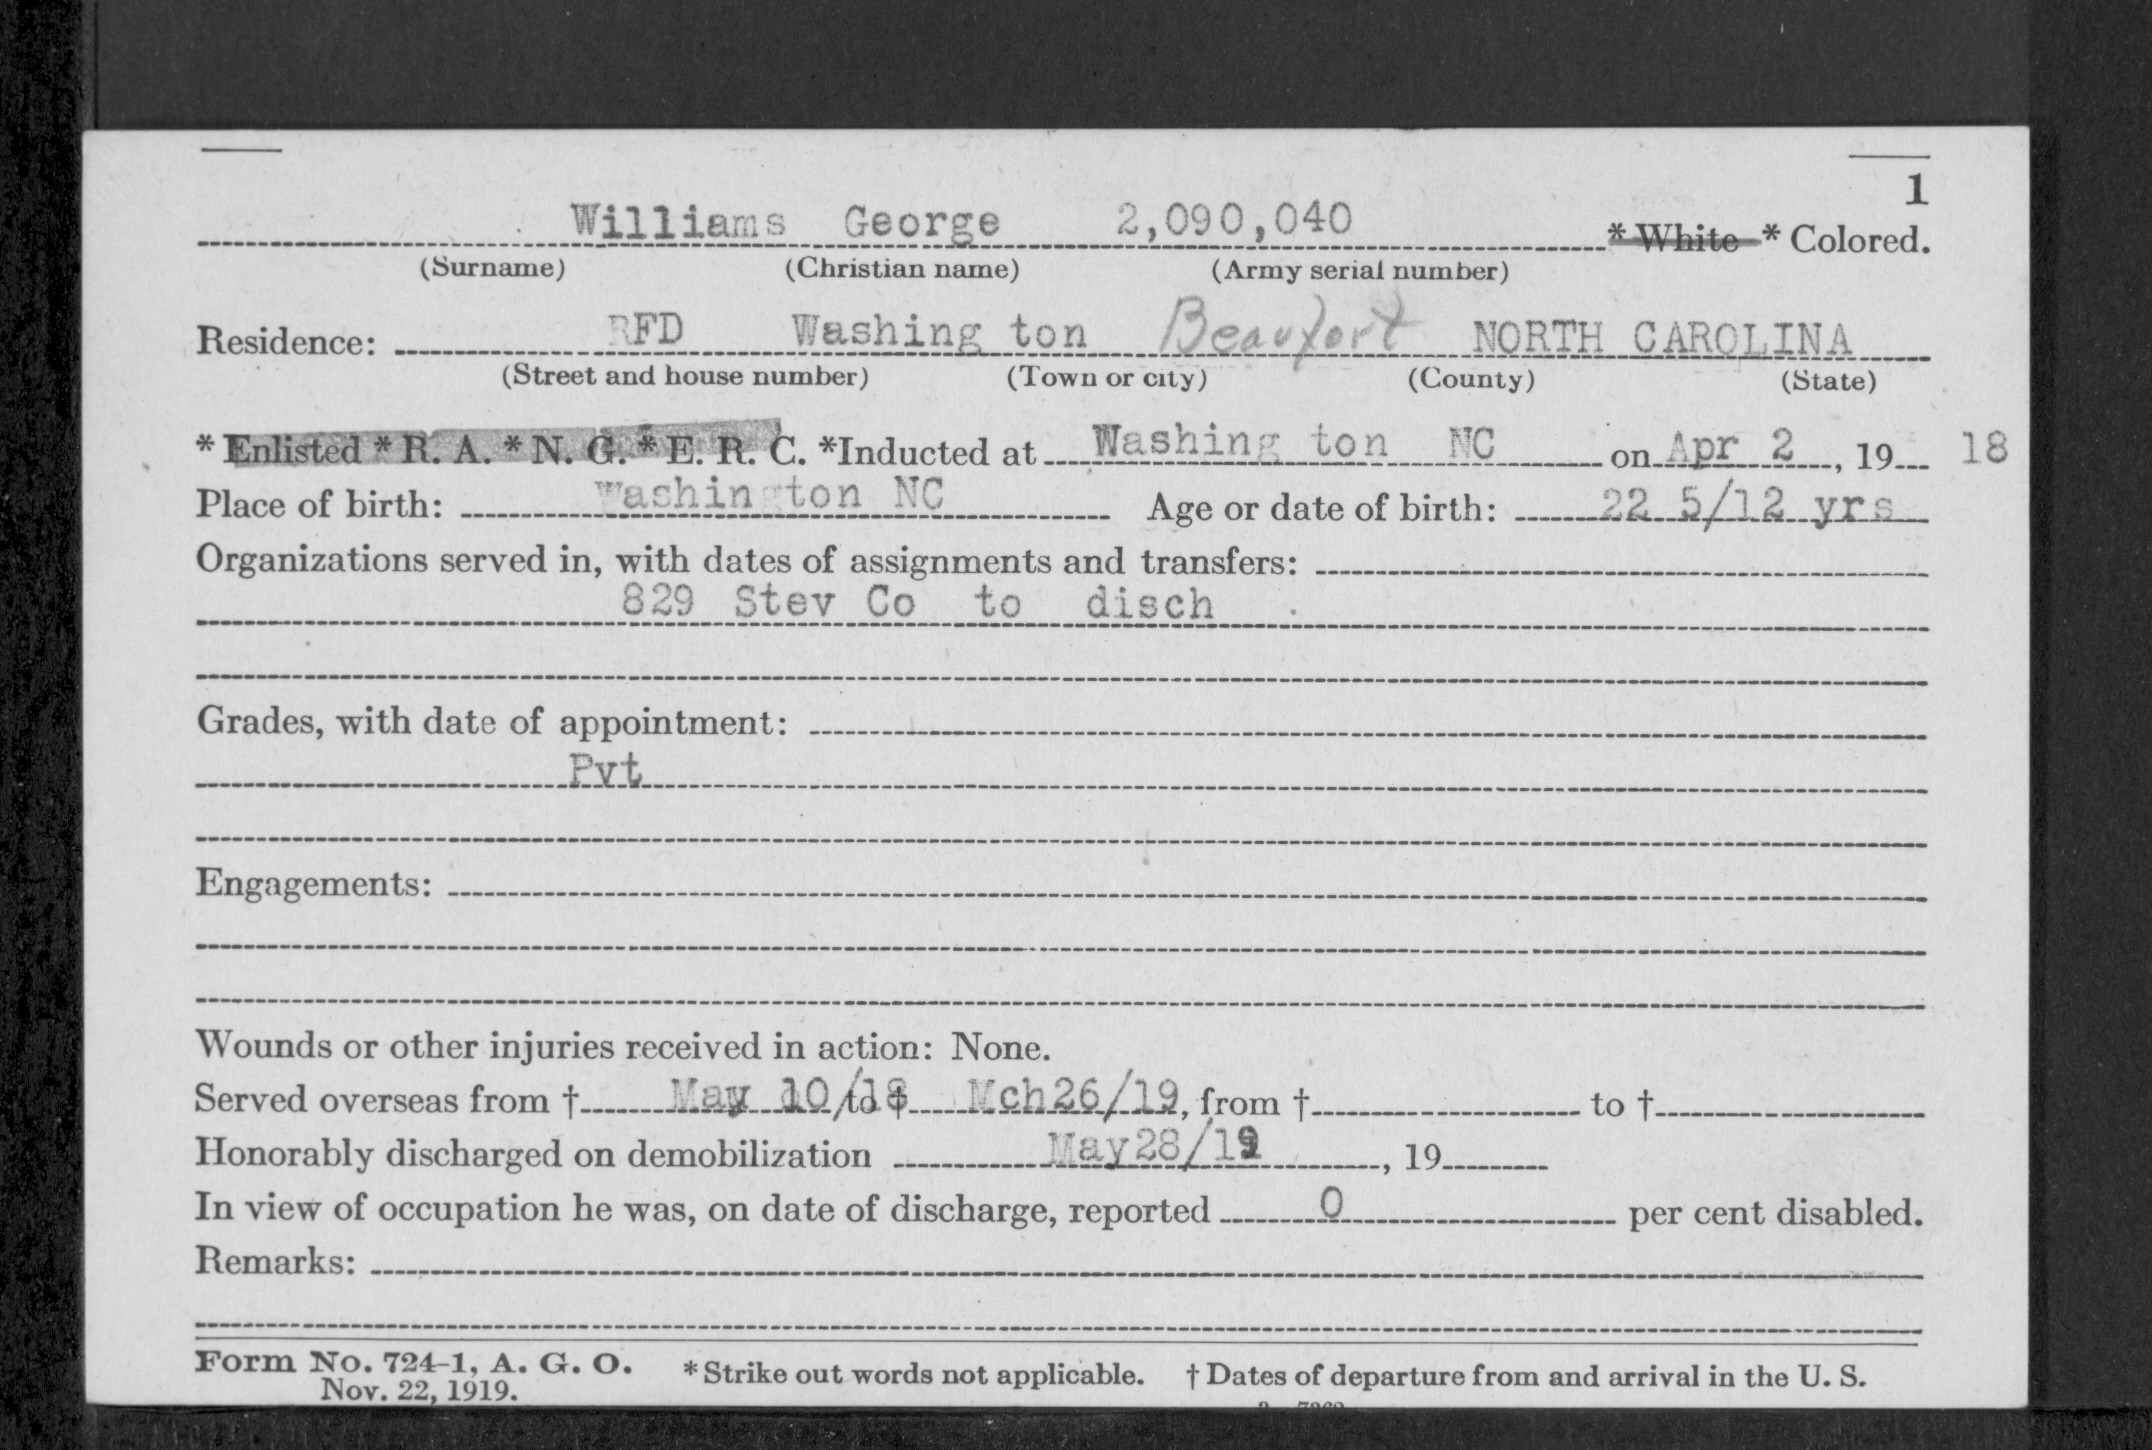 1
Williams George 2,090,040 * White * Colored.
(Surname) (Christian name) (Army serial number)
Residence: RFD Washing ton Beaufort NORTH CAROLINA
(Street and house number) (Town or city) (County) (State)
* Enlisted * R. A. * N. G. * E. R. C. *Inducted at Washing ton NC on Apr 2, 19 18
Place of birth: Washington NC Age or date of birth: 22 5/12 yrs
Organizations served in, with dates of assignments and transfers:
829 Stev Co to disch
Grades, with date of appointment:
Pvt
Engagements:
Wounds or other injuries received in action: None.
Served overseas from † May 10/18 to † Mch26/19, from † to †
Honorably discharged on demobilization May28/19, 19
In view of occupation he was, on date of discharge, reported 0 per cent disabled.
Remarks:
Form No. 724-1, A. G. O. * Strike out words not applicable. † Dates of departure from and arrival in the U. S.
Nov. 22, 1919.